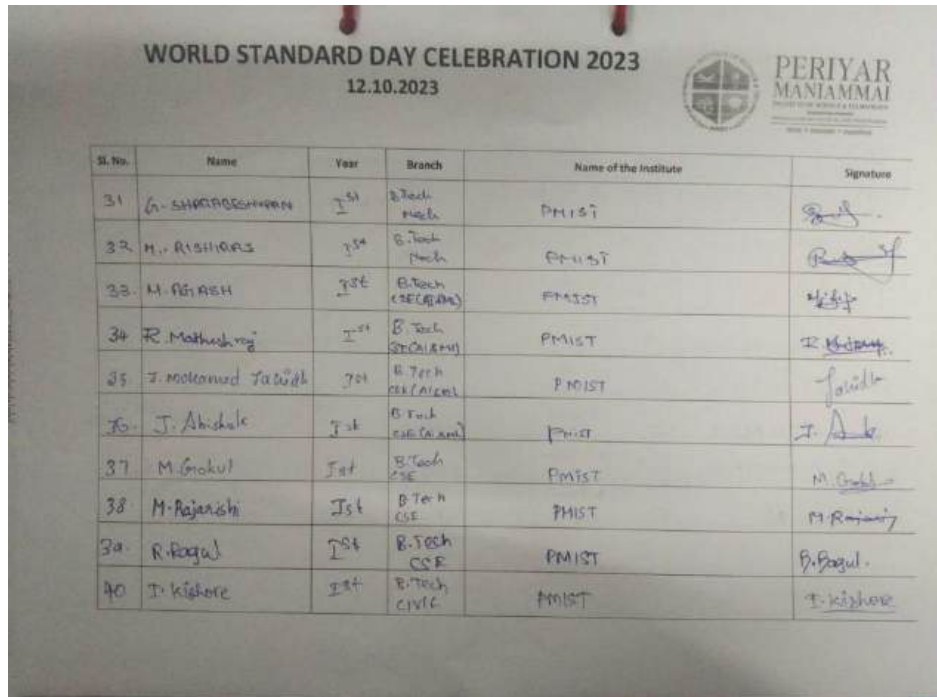 WORLD STANDARD DAY CELEBRATION 2023
12.10.2023
PERIYAR
MANIAMMAI
Sl. No. Name Year Branch Name of the Institute Signature
31 G. Ist B.Tech Mech PMIST
32 M. RISHIRAJ Ist B.Tech Mech PMIST
33. M. Ist B.Tech CSE(AI&ML) PMIST
34 R. Mathushraj Ist B.Tech CSE(AI&ML) PMIST R.
35 J. Mohamed Ist B.Tech CSE(AI&ML) PMIST
36. J. Abishek Ist B.Tech CSE(AI&ML) PMIST J.
37 M. Gokul Ist B.Tech CSE PMIST M. Gokul
38 M. Rajarishi Ist B.Tech CSE PMIST M.
39. R. Ragul Ist B.Tech CSE PMIST R. Ragul.
40 I. Kishore Ist B.Tech CIVIL PMIST I. Kishore